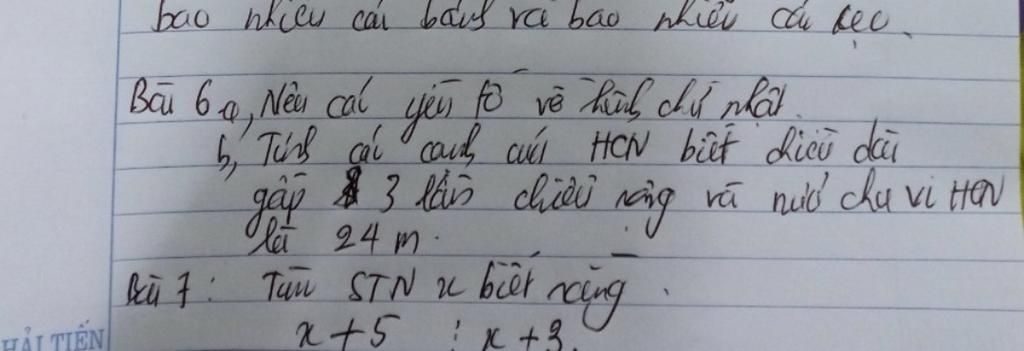 bao nhiêu cái bánh và bao nhiêu cái kẹo.
Bài 6 a, Nêu các yếu tố về hình chữ nhật.
b, Tính các cạnh của HCN biết chiều dài
gấp 3 lần chiều rộng và nửa chu vi HCN
là 24 m.
Bài 7: Tìm STN x biết rằng.
x + 5 ⋮ x + 3.
HẢI TIẾN